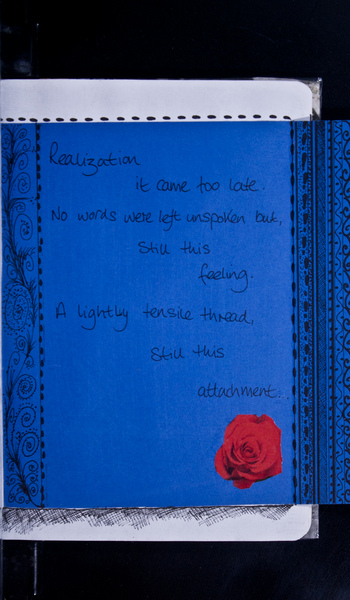 Realization
it came too late.
No words were left unspoken but,
Still this
feeling.
A lightly tensile thread,
Still this
attachment..